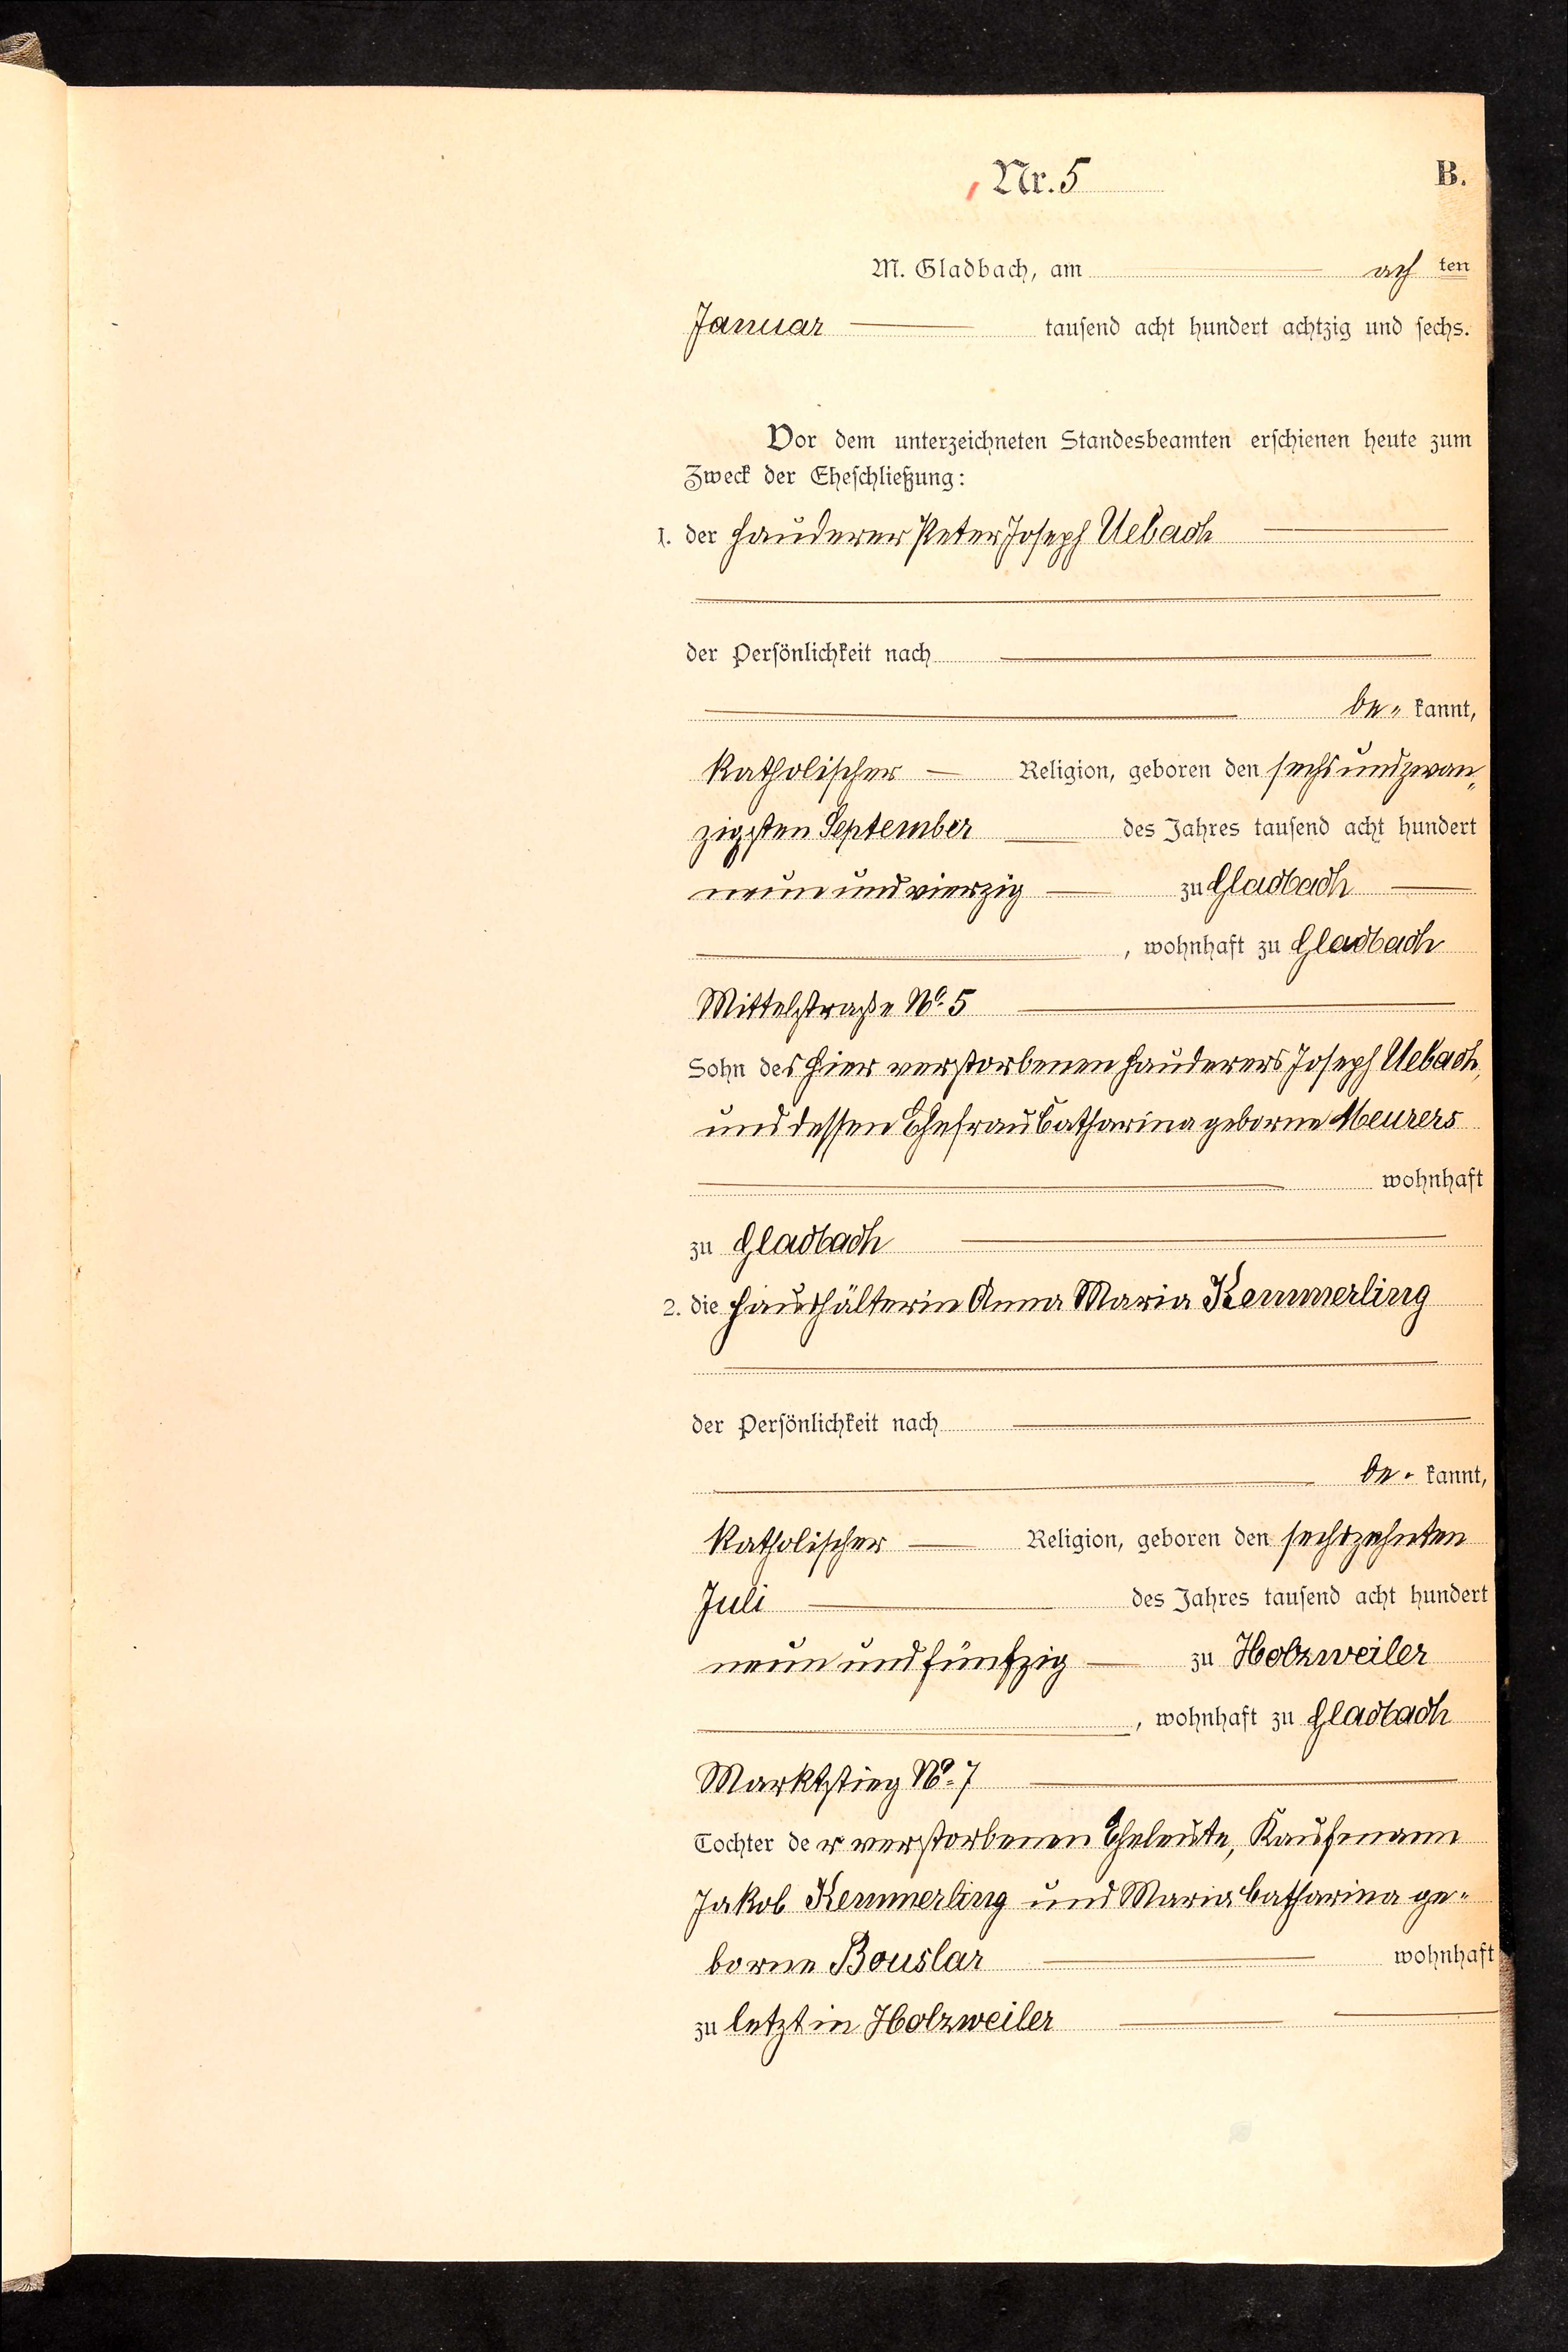 Nr. 5
B.
M. Gladbach, am ach ten
Januar tausend acht hundert achtzig und sechs.
Vor dem unterzeichneten Standesbeamten erschienen heute zum
Zweck der Eheschließung:
1. der Hauderer Peter Joseph Uebach
der Persönlichkeit nach
be„ kannt,
katholischer Religion, geboren den sechsundzwan„
zigsten September des Jahres tausend acht hundert
neun und vierzig zu Gladbach
, wohnhaft zu Gladbach
Mittelstraße No. 5
Sohn des hier verstorbenen Hauderers Joseph Uebach,
und dessen Ehefrau Catharina geborne Meurers
wohnhaft
zu Gladbach
2. die Haushälterin Anna Maria Kemmerling
der Persönlichkeit nach
be„ kannt,
katholischer Religion, geboren den sechszehnten
Juli des Jahres tausend acht hundert
neun und fünfzig zu Holzweiler
, wohnhaft zu Gladbach
Marktstieg No. 7
Tochter der verstorbenen Eheleute, Kaufmann
Jakob Kemmerling und Maria Catharina ge„
borne Bouslar wohnhaft
zu letzt in Holzweiler